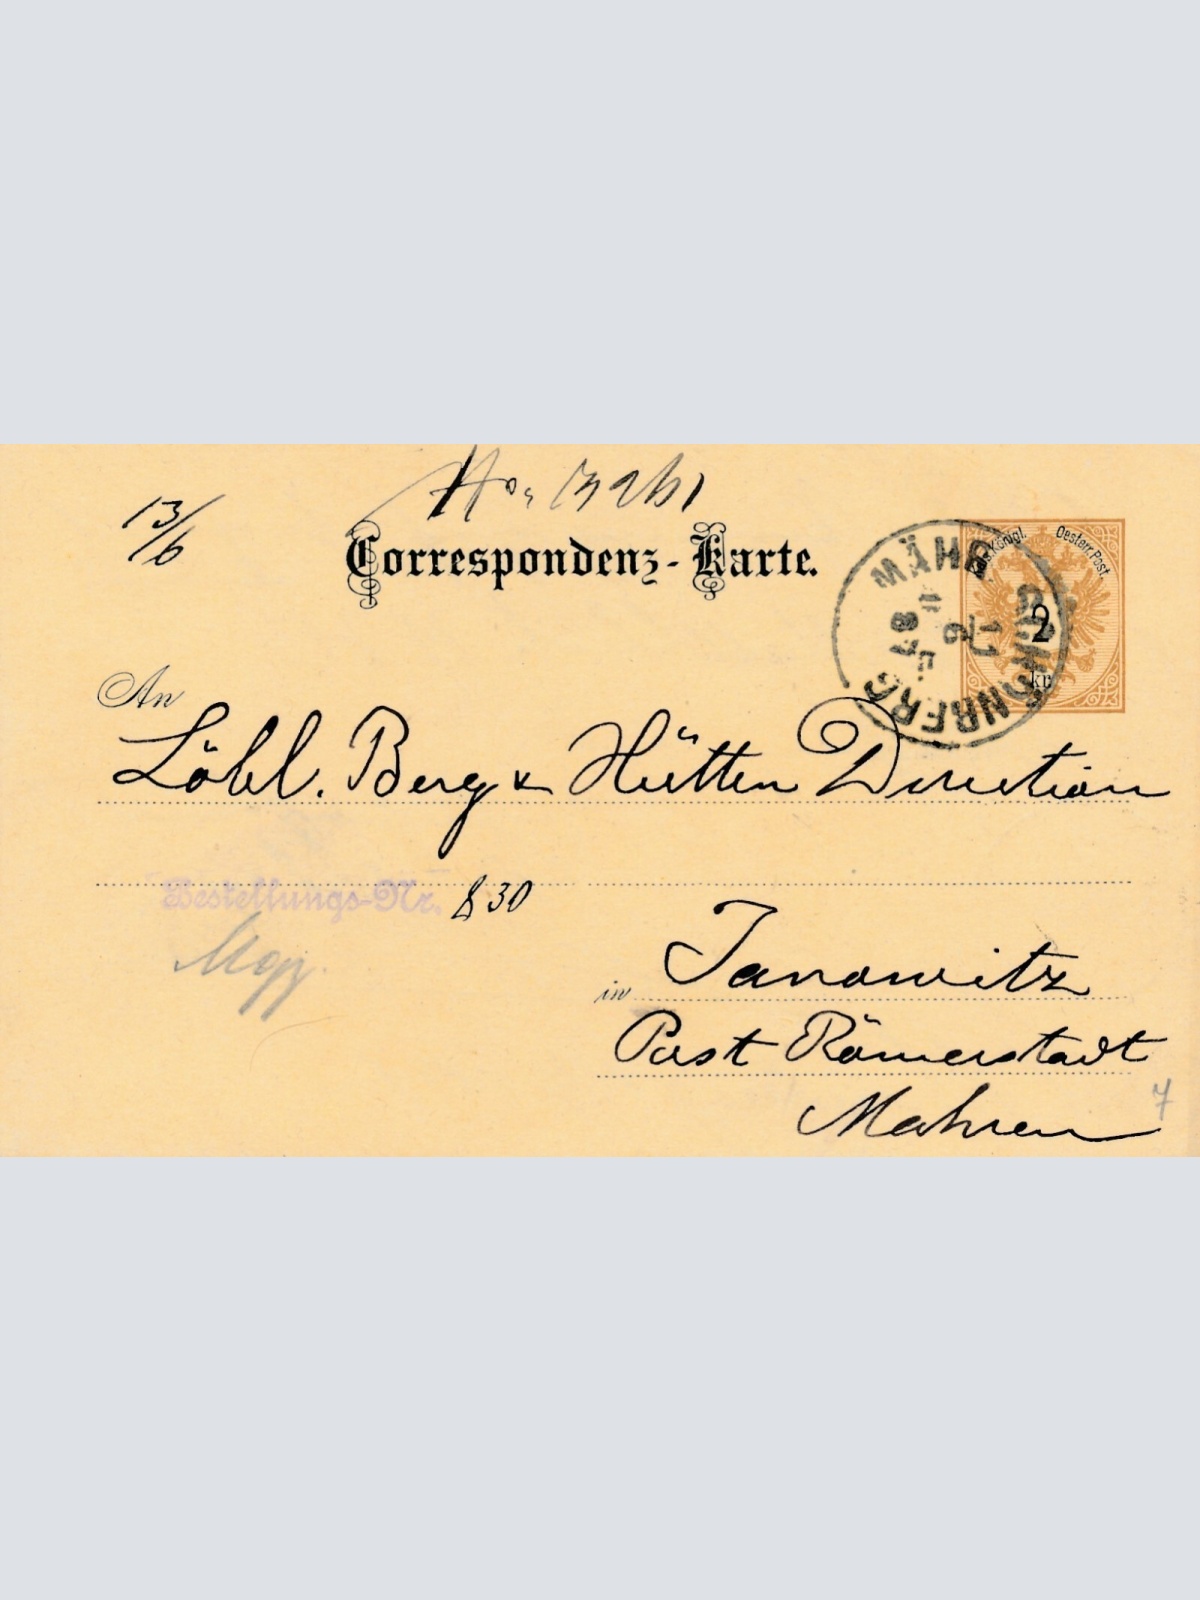 13/6
Correspondenz-Karte.
Kais. Königl. Oesterr. Post.
2
kr.
MÄHR. SCHÖNBERG
11
6
87
An
Löbl. Berg & Hütten Direction
Bestellungs-Nr. 830
in Janowitz
Post Römerstadt
Mahren
7